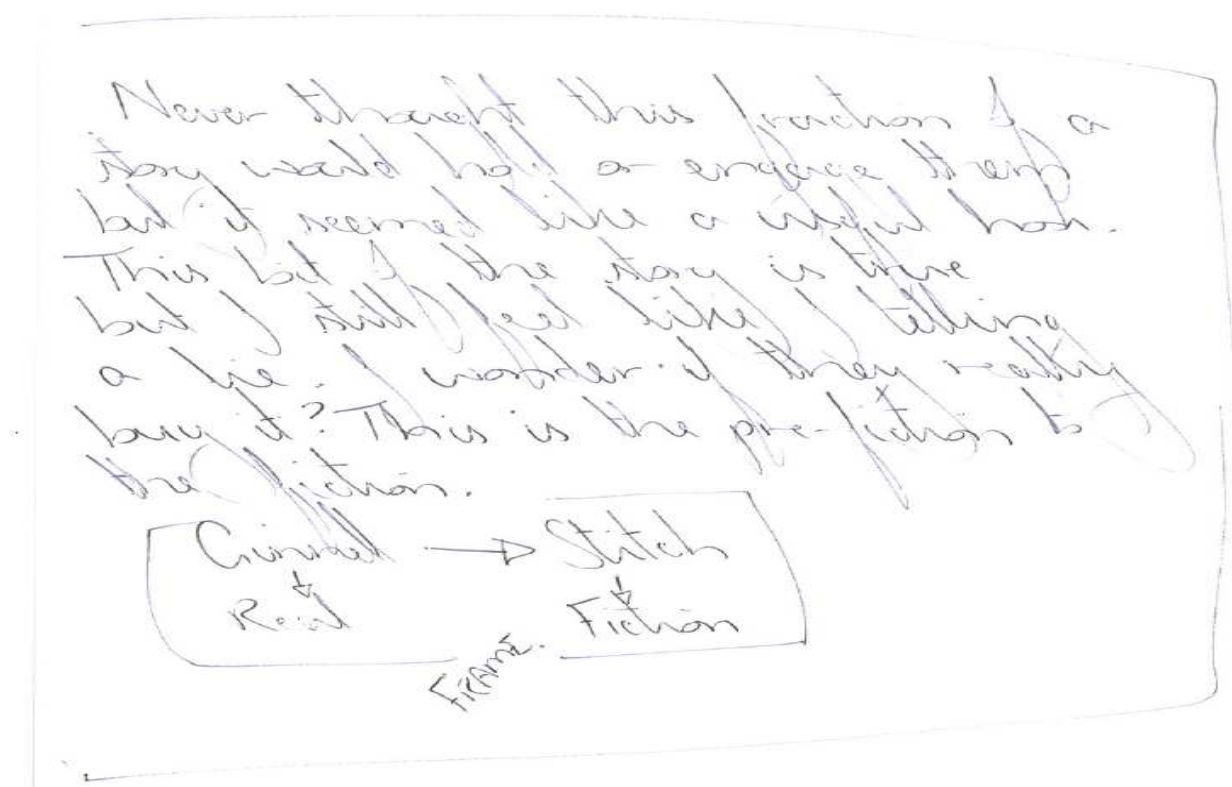 Never thought this fraction of a
story would hold or engage them
but it seemed like a useful hook.
This bit of the story is true
but I still feel like I telling
a lie. I wonder if they really
buy it? This is the pre-fiction to
the fiction.
→ Stitch
Real Fiction
FRAME.